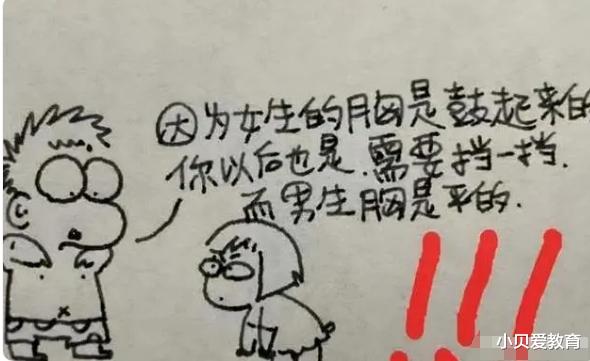 因为女生的胸是鼓起来的
你以后也是.需要挡一挡.
而男生胸是平的.
!!!
小贝爱教育